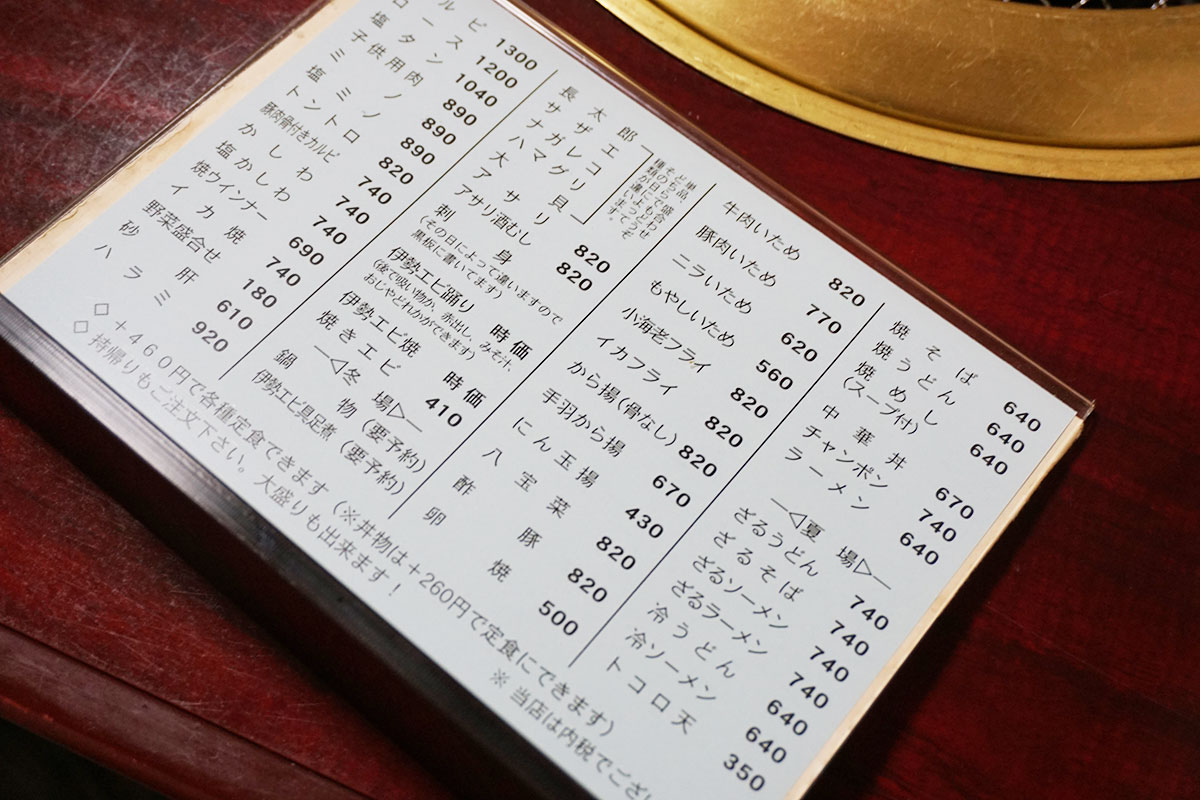 ルビ 1300
ロース 1200
塩タン 1040
子供用肉 890
ミノ 890
塩ミノ 890
トントロ 820
豚肉骨付きカルビ 740
かしわ 740
塩かしわ 740
焼ウインナー 690
イカ焼 740
野菜盛合せ 180
砂肝 610
ハラミ 920
長太郎
サザエ
ナガレコ
ハマグリ
大貝
単品盛合わせ
どちらでもどうぞ
その日によって
種類が違います。
アサリ 820
アサリ酒むし 820
刺身
(その日によって違いますので
黒板に書いてます)
伊勢エビ踊り 時価
(後で吸い物か、赤出し、みそ汁、
おじやどれかができます)
伊勢エビ焼 時価
焼きエビ 410
―◁冬 場▷―
鍋物(要予約)
伊勢エビ具足煮(要予約)
牛肉いため 820
豚肉いため 770
ニラいため 620
もやしいため 560
小海老フライ 820
イカフライ 820
から揚(骨なし) 820
手羽から揚 670
にん玉揚 430
八宝菜 820
酢豚 820
卵焼 500
焼そば 640
焼うどん 640
焼めし 640
(スープ付)
中華丼 670
チャンポン 740
ラーメン 640
―◁夏 場▷―
ざるうどん 740
ざるそば 740
ざるソーメン 740
ざるラーメン 740
冷うどん 640
冷ソーメン 640
トコロ天 350
◇+460円で各種定食できます(※丼物は+260円で定食にできます)
◇持帰りもご注文下さい。大盛りも出来ます!
※当店は内税でござい